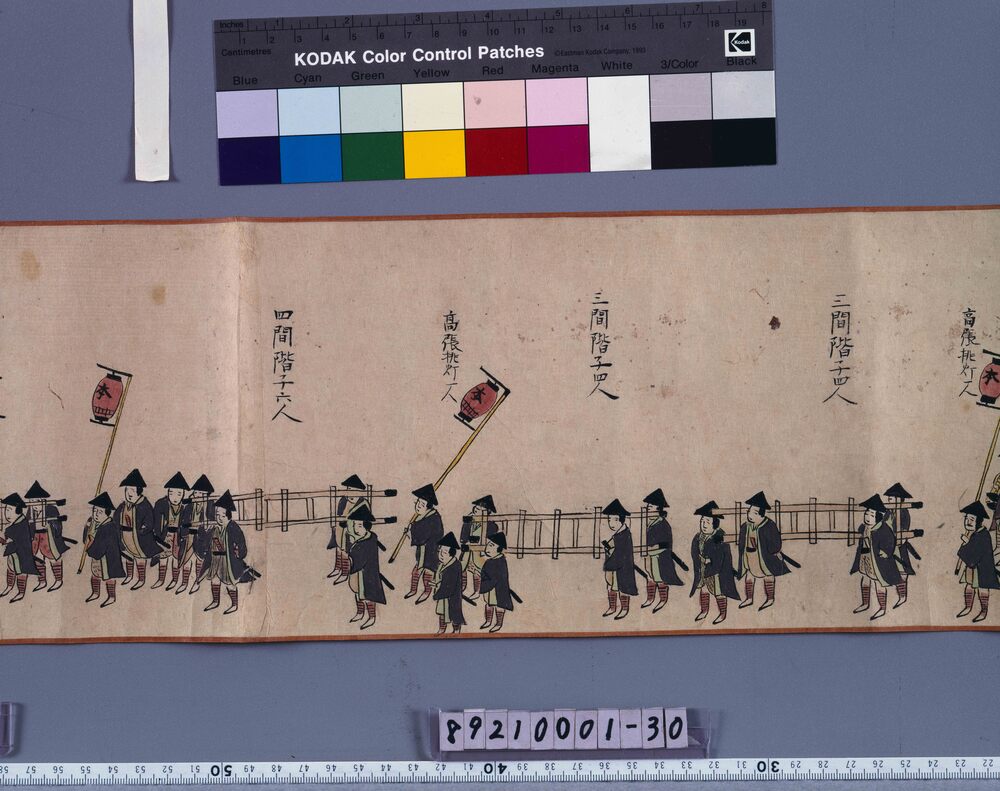 Inches 1 2 3 4 5 6 7 8
Centimetres 1 2 3 4 5 6 7 8 9 10 11 12 13 14 15 16 17 18 19
KODAK Color Control Patches
©Eastman Kodak Company, 1993
Kodak
Blue Cyan Green Yellow Red Magenta White 3/Color Black
高張挑灯一人
三間階子四人
三間階子四人
高張挑灯一人
四間階子六人
本
本
本
89210001-30
58 57 56 55 54 53 52 51 50 49 48 47 46 45 44 43 42 41 40 39 38 37 36 35 34 33 32 31 30 29 28 27 26 25 24 23 22